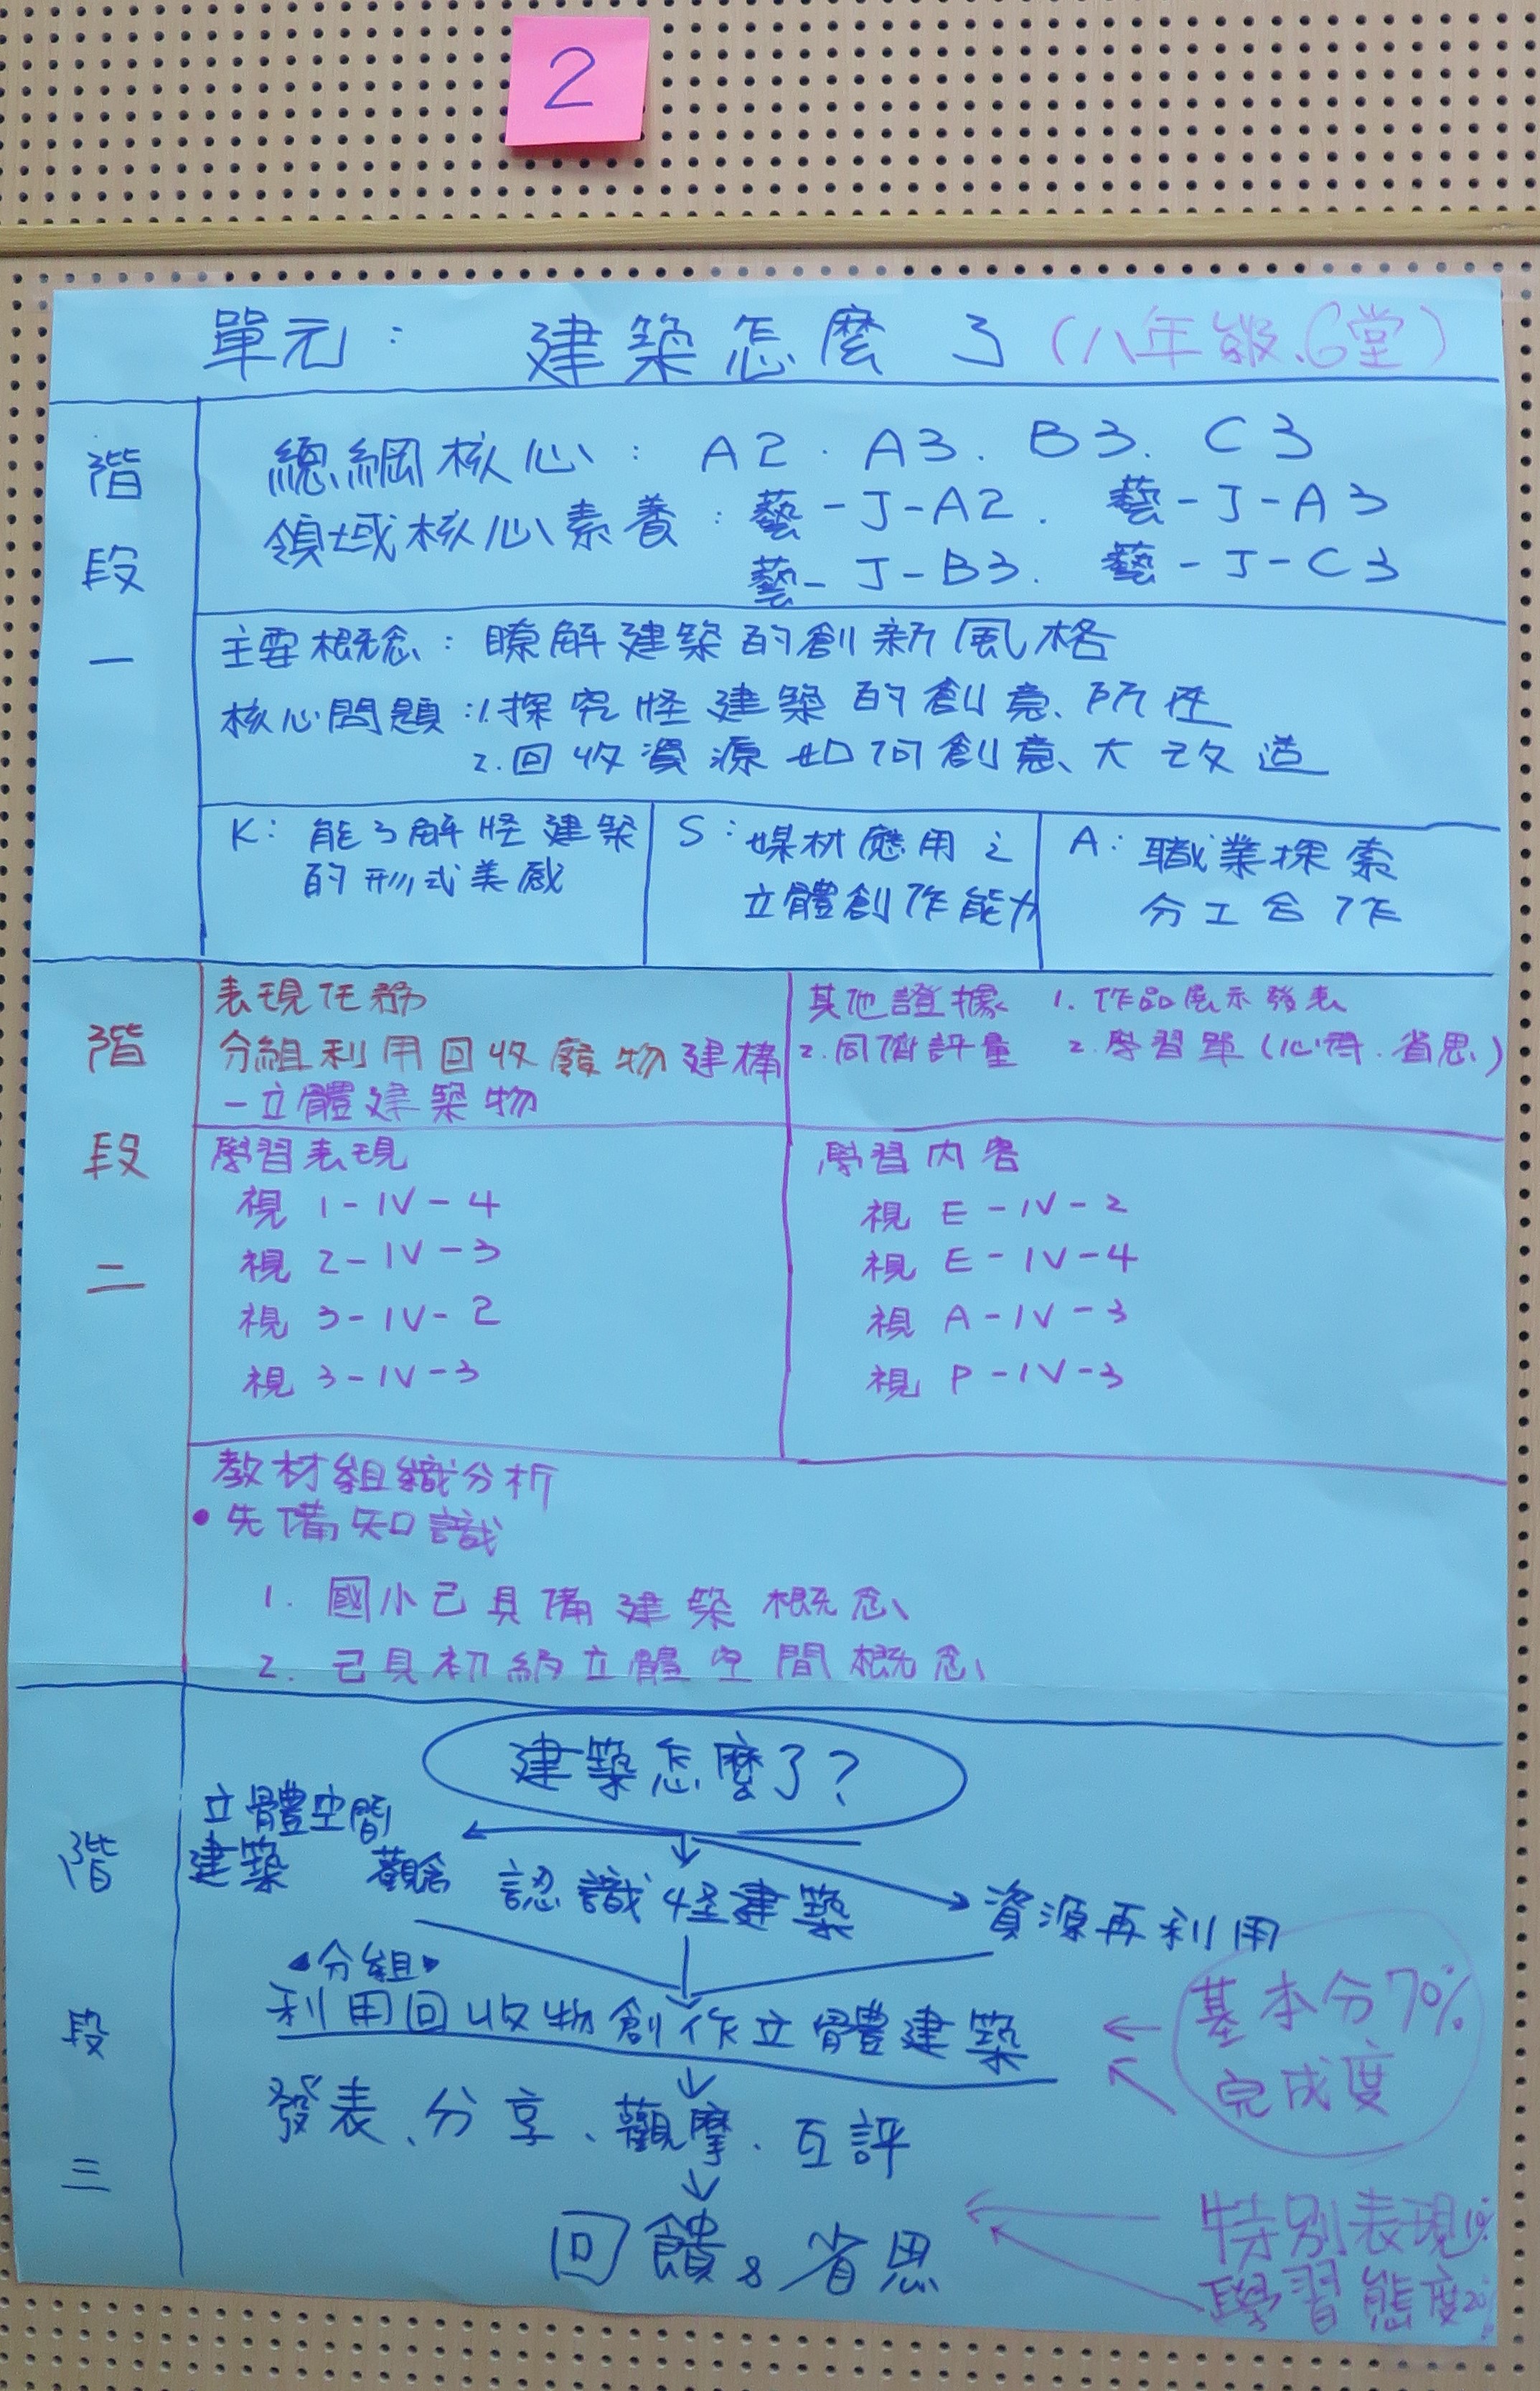 2
單元： 建築怎麼了（八年級、6堂）
階段一
總綱核心： A2. A3. B3. C3
領域核心素養：藝-J-A2. 藝-J-A3
藝-J-B3. 藝-J-C3
主要概念：瞭解建築的創新風格
核心問題：1.探究怪建築的創意所在
2.回收資源如何創意大改造
K：能了解怪建築
的形式美感
S：媒材應用之
立體創作能力
A：職業探索
分工合作
階段二
表現任務
分組利用回收廢物建構
一立體建築物
其他證據 1.作品展示發表
2.同儕評量 2.學習單（心得.省思）
學習表現
視 1-IV-4
視 2-IV-3
視 3-IV-2
視 3-IV-3
學習內容
視 E-IV-2
視 E-IV-4
視 A-IV-3
視 P-IV-3
教材組織分析
•先備知識
1. 國小已具備建築概念
2. 已具初納立體空間概念
階段三
建築怎麼了？
立體空間
建築 觀念
認識怪建築
資源再利用
分組
利用回收物創作立體建築
基本分70%
完成度
發表、分享、觀摩、互評
回饋&省思
特別表現10%
學習態度20%